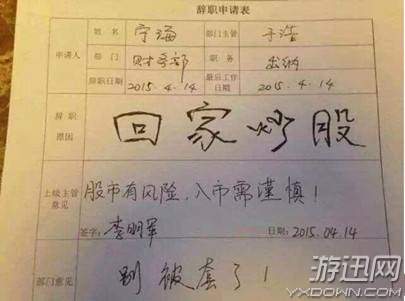 辞职申请表
申请人 姓名 宁海 部门主管 于浩
部门 财务部 职务 出纳
辞职日期 2015.4.14 最后工作日期 2015.4.14
辞职原因 回家炒股
上级主管意见 股市有风险,入市需谨慎!
签字: 李明军 日期: 2015.04.14
部门意见 别被套了!
游迅网
YXDOWN.COM